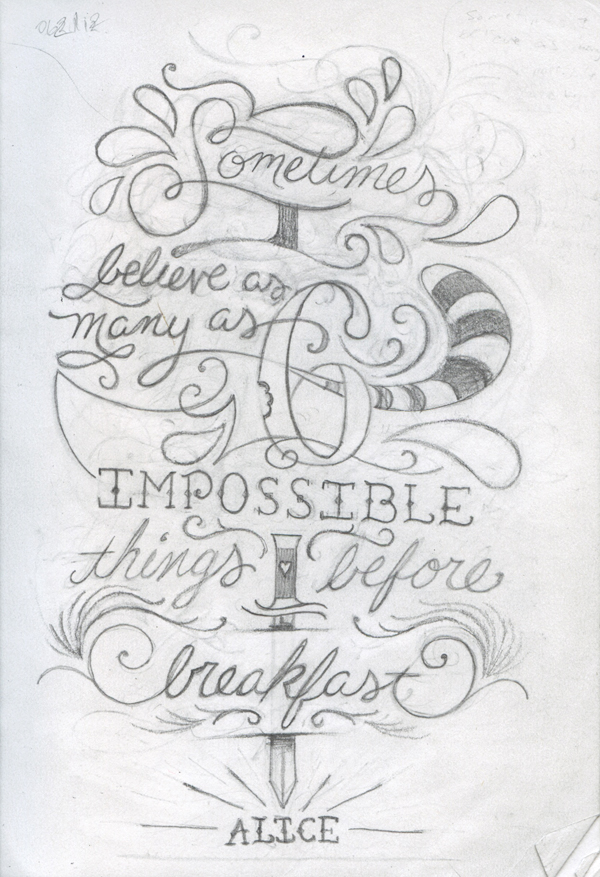 Sometimes
believe as
many as
6
IMPOSSIBLE
things before
breakfast
ALICE